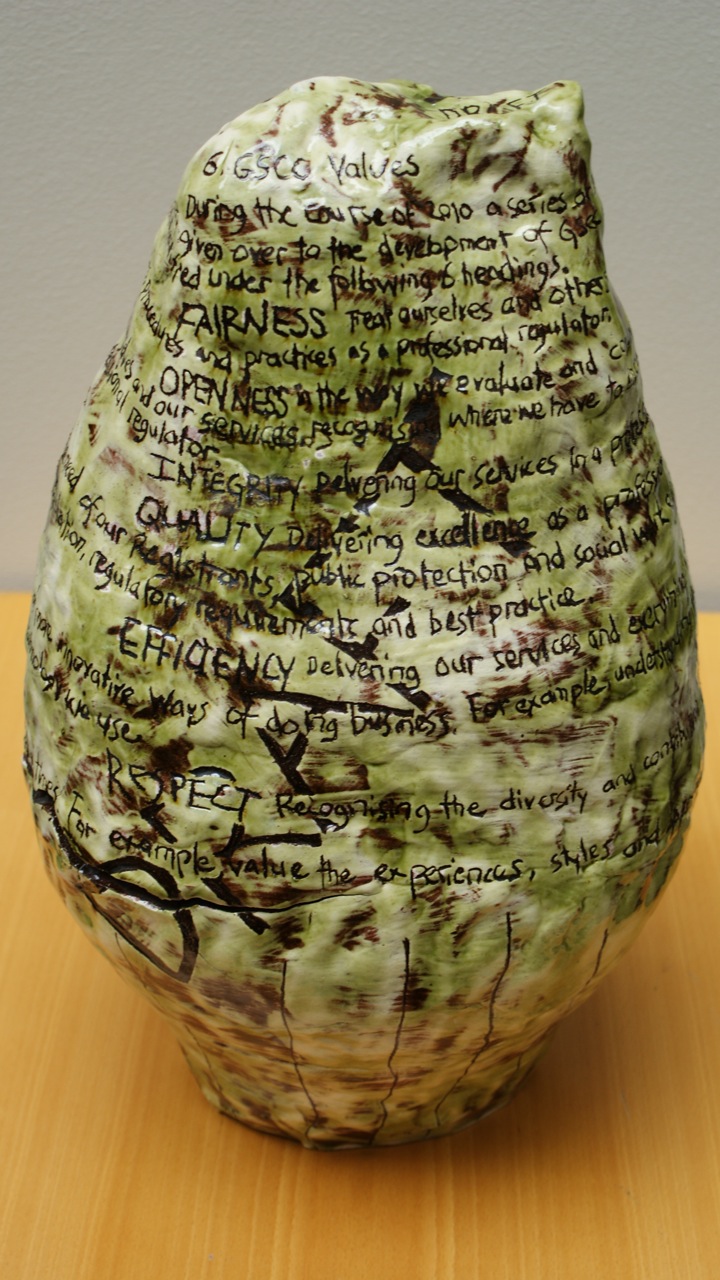 6. GSCC Values
During the course of 2010 a series of
given over to the development of GSC
red under the following 6 headings.
FAIRNESS Treat ourselves and other
procedures and practices as a professional regulator.
OPENNESS in the way we evaluate and
and our services, recognising where we have to
regulator.
INTEGRITY Delivering our services in a
QUALITY Delivering excellence as a
of our Registrants, public protection and social work
regulatory requirements and best practice.
EFFICIENCY Delivering our services and
more innovative ways of doing business. For example, understand
we use.
RESPECT Recognising the diversity and
For example, value the experiences, styles and